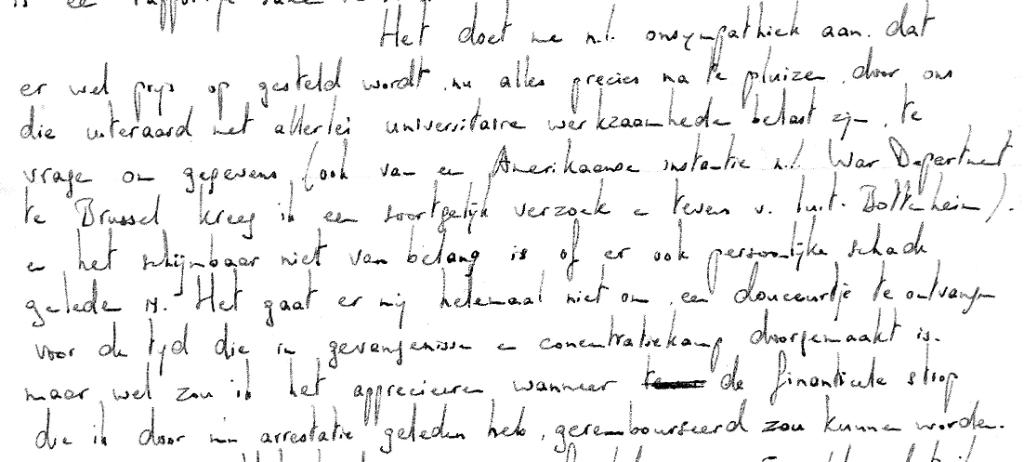 Het doet me n.l. onsympathiek aan, dat
er wel prijs op gesteld wordt, nu alles precies na te pluizen, door ons
die uiteraard met allerlei universitaire werkzaamheden belast zijn, te
vragen om gegevens (ook van een Amerikaanse instantie n.l. War Department
te Brussel kreeg ik een soortgelijk verzoek en tevens v. luit. Bottenheim).
en het schijnbaar niet van belang is of er ook persoonlijke schade
geleden is. Het gaat er mij helemaal niet om, een douceurtje te ontvangen
voor de tijd die in gevangenissen en concentratiekamp doorgemaakt is.
maar wel zou ik het apprecieeren wanneer de financieele strop
die ik door mijn arrestatie geleden heb, gerembourseerd zou kunnen worden.